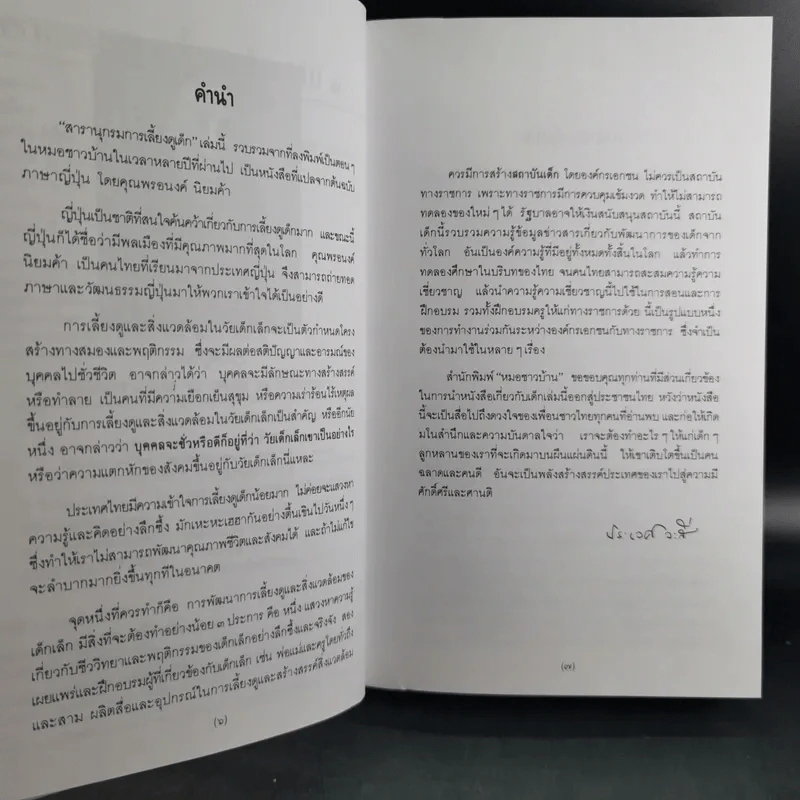 คำนำ
"สารานุกรมการเลี้ยงดูเด็ก" เล่มนี้ รวบรวมจากที่ลงพิมพ์เป็นตอนๆ
ในหมอชาวบ้านในเวลาหลายปีที่ผ่านไป เป็นหนังสือที่แปลจากต้นฉบับ
ภาษาญี่ปุ่น โดยคุณพรอนงค์ นิยมค้า
ญี่ปุ่นเป็นชาติที่สนใจค้นคว้าเกี่ยวกับการเลี้ยงดูเด็กมาก และขณะนี้
ญี่ปุ่นก็ได้ชื่อว่ามีพลเมืองที่มีคุณภาพมากที่สุดในโลก คุณพรอนงค์
นิยมค้า เป็นคนไทยที่เรียนมาจากประเทศญี่ปุ่น จึงสามารถถ่ายทอด
ภาษาและวัฒนธรรมญี่ปุ่นมาให้พวกเราเข้าใจได้เป็นอย่างดี
การเลี้ยงดูและสิ่งแวดล้อมในวัยเด็กเล็กจะเป็นตัวกำหนดโครง
สร้างทางสมองและพฤติกรรม ซึ่งจะมีผลต่อสติปัญญาและอารมณ์ของ
บุคคลไปชั่วชีวิต อาจกล่าวได้ว่า บุคคลจะมีลักษณะทางสร้างสรรค์
หรือทำลาย เป็นคนที่มีความเยือกเย็นสุขุม หรือความเร่าร้อนไร้เหตุผล
ขึ้นอยู่กับการเลี้ยงดูและสิ่งแวดล้อมในวัยเด็กเล็กเป็นสำคัญ หรืออีกนัย
หนึ่ง อาจกล่าวว่า บุคคลจะชั่วหรือดีก็อยู่ที่ว่า วัยเด็กเล็กเขาเป็นอย่างไร
หรือว่าความแตกหักของสังคมขึ้นอยู่กับวัยเด็กเล็กนี่แหละ
ประเทศไทยมีความเข้าใจการเลี้ยงดูเด็กน้อยมาก ไม่ค่อยจะแสวงหา
ความรู้และคิดอย่างลึกซึ้ง มักเหะหะเฮฮากันอย่างตื้นเขินไปวันหนึ่งๆ
ซึ่งทำให้เราไม่สามารถพัฒนาคุณภาพชีวิตและสังคมได้ และถ้าไม่แก้ไข
จะลำบากมากยิ่งขึ้นทุกทีในอนาคต
จุดหนึ่งที่ควรทำก็คือ การพัฒนาการเลี้ยงดูและสิ่งแวดล้อมของ
เด็กเล็ก มีสิ่งที่จะต้องทำอย่างน้อย ๓ ประการ คือ หนึ่ง แสวงหาความรู้
เกี่ยวกับชีววิทยาและพฤติกรรมของเด็กเล็กอย่างลึกซึ้งและจริงจัง สอง
เผยแพร่และฝึกอบรมผู้ที่เกี่ยวข้องกับเด็กเล็ก เช่น พ่อแม่และครูโดยทั่วถึง
และสาม ผลิตสื่อและอุปกรณ์ในการเลี้ยงดูและสร้างสรรค์สิ่งแวดล้อม
(๖)
ควรมีการสร้างสถาบันเด็ก โดยองค์กรเอกชน ไม่ควรเป็นสถาบัน
ทางราชการ เพราะทางราชการมีการควบคุมเข้มงวด ทำให้ไม่สามารถ
ทดลองของใหม่ๆ ได้ รัฐบาลอาจให้เงินสนับสนุนสถาบันนี้ สถาบัน
เด็กนี้รวบรวมความรู้ข้อมูลข่าวสารเกี่ยวกับพัฒนาการของเด็กจาก
ทั่วโลก อันเป็นองค์ความรู้ที่มีอยู่ทั้งหมดทั้งสิ้นในโลก แล้วทำการ
ทดลองศึกษาในบริบทของไทย จนคนไทยสามารถสะสมความรู้ความ
เชี่ยวชาญ แล้วนำความรู้ความเชี่ยวชาญนี้ไปใช้ในการสอนและการ
ฝึกอบรม รวมทั้งฝึกอบรมครูให้แก่ทางราชการด้วย นี้เป็นรูปแบบหนึ่ง
ของการทำงานร่วมกันระหว่างองค์กรเอกชนกับทางราชการ ซึ่งจำเป็น
ต้องนำมาใช้ในหลายๆ เรื่อง
สำนักพิมพ์ "หมอชาวบ้าน" ขอขอบคุณทุกท่านที่มีส่วนเกี่ยวข้อง
ในการนำหนังสือเกี่ยวกับเด็กเล่มนี้ออกสู่ประชาชนไทย หวังว่าหนังสือ
นี้จะเป็นสื่อไปถึงดวงใจของเพื่อนชาวไทยทุกคนที่อ่านพบ และก่อให้เกิด
มโนสำนึกและความบันดาลใจว่า เราจะต้องทำอะไรๆ ให้แก่เด็กๆ
ลูกหลานของเราที่จะเกิดมาบนผืนแผ่นดินนี้ ให้เขาเติบโตขึ้นเป็นคน
ฉลาดและคนดี อันจะเป็นพลังสร้างสรรค์ประเทศของเราไปสู่ความมี
ศักดิ์ศรีและศานติ
ประเวศ วะสี
(๗)